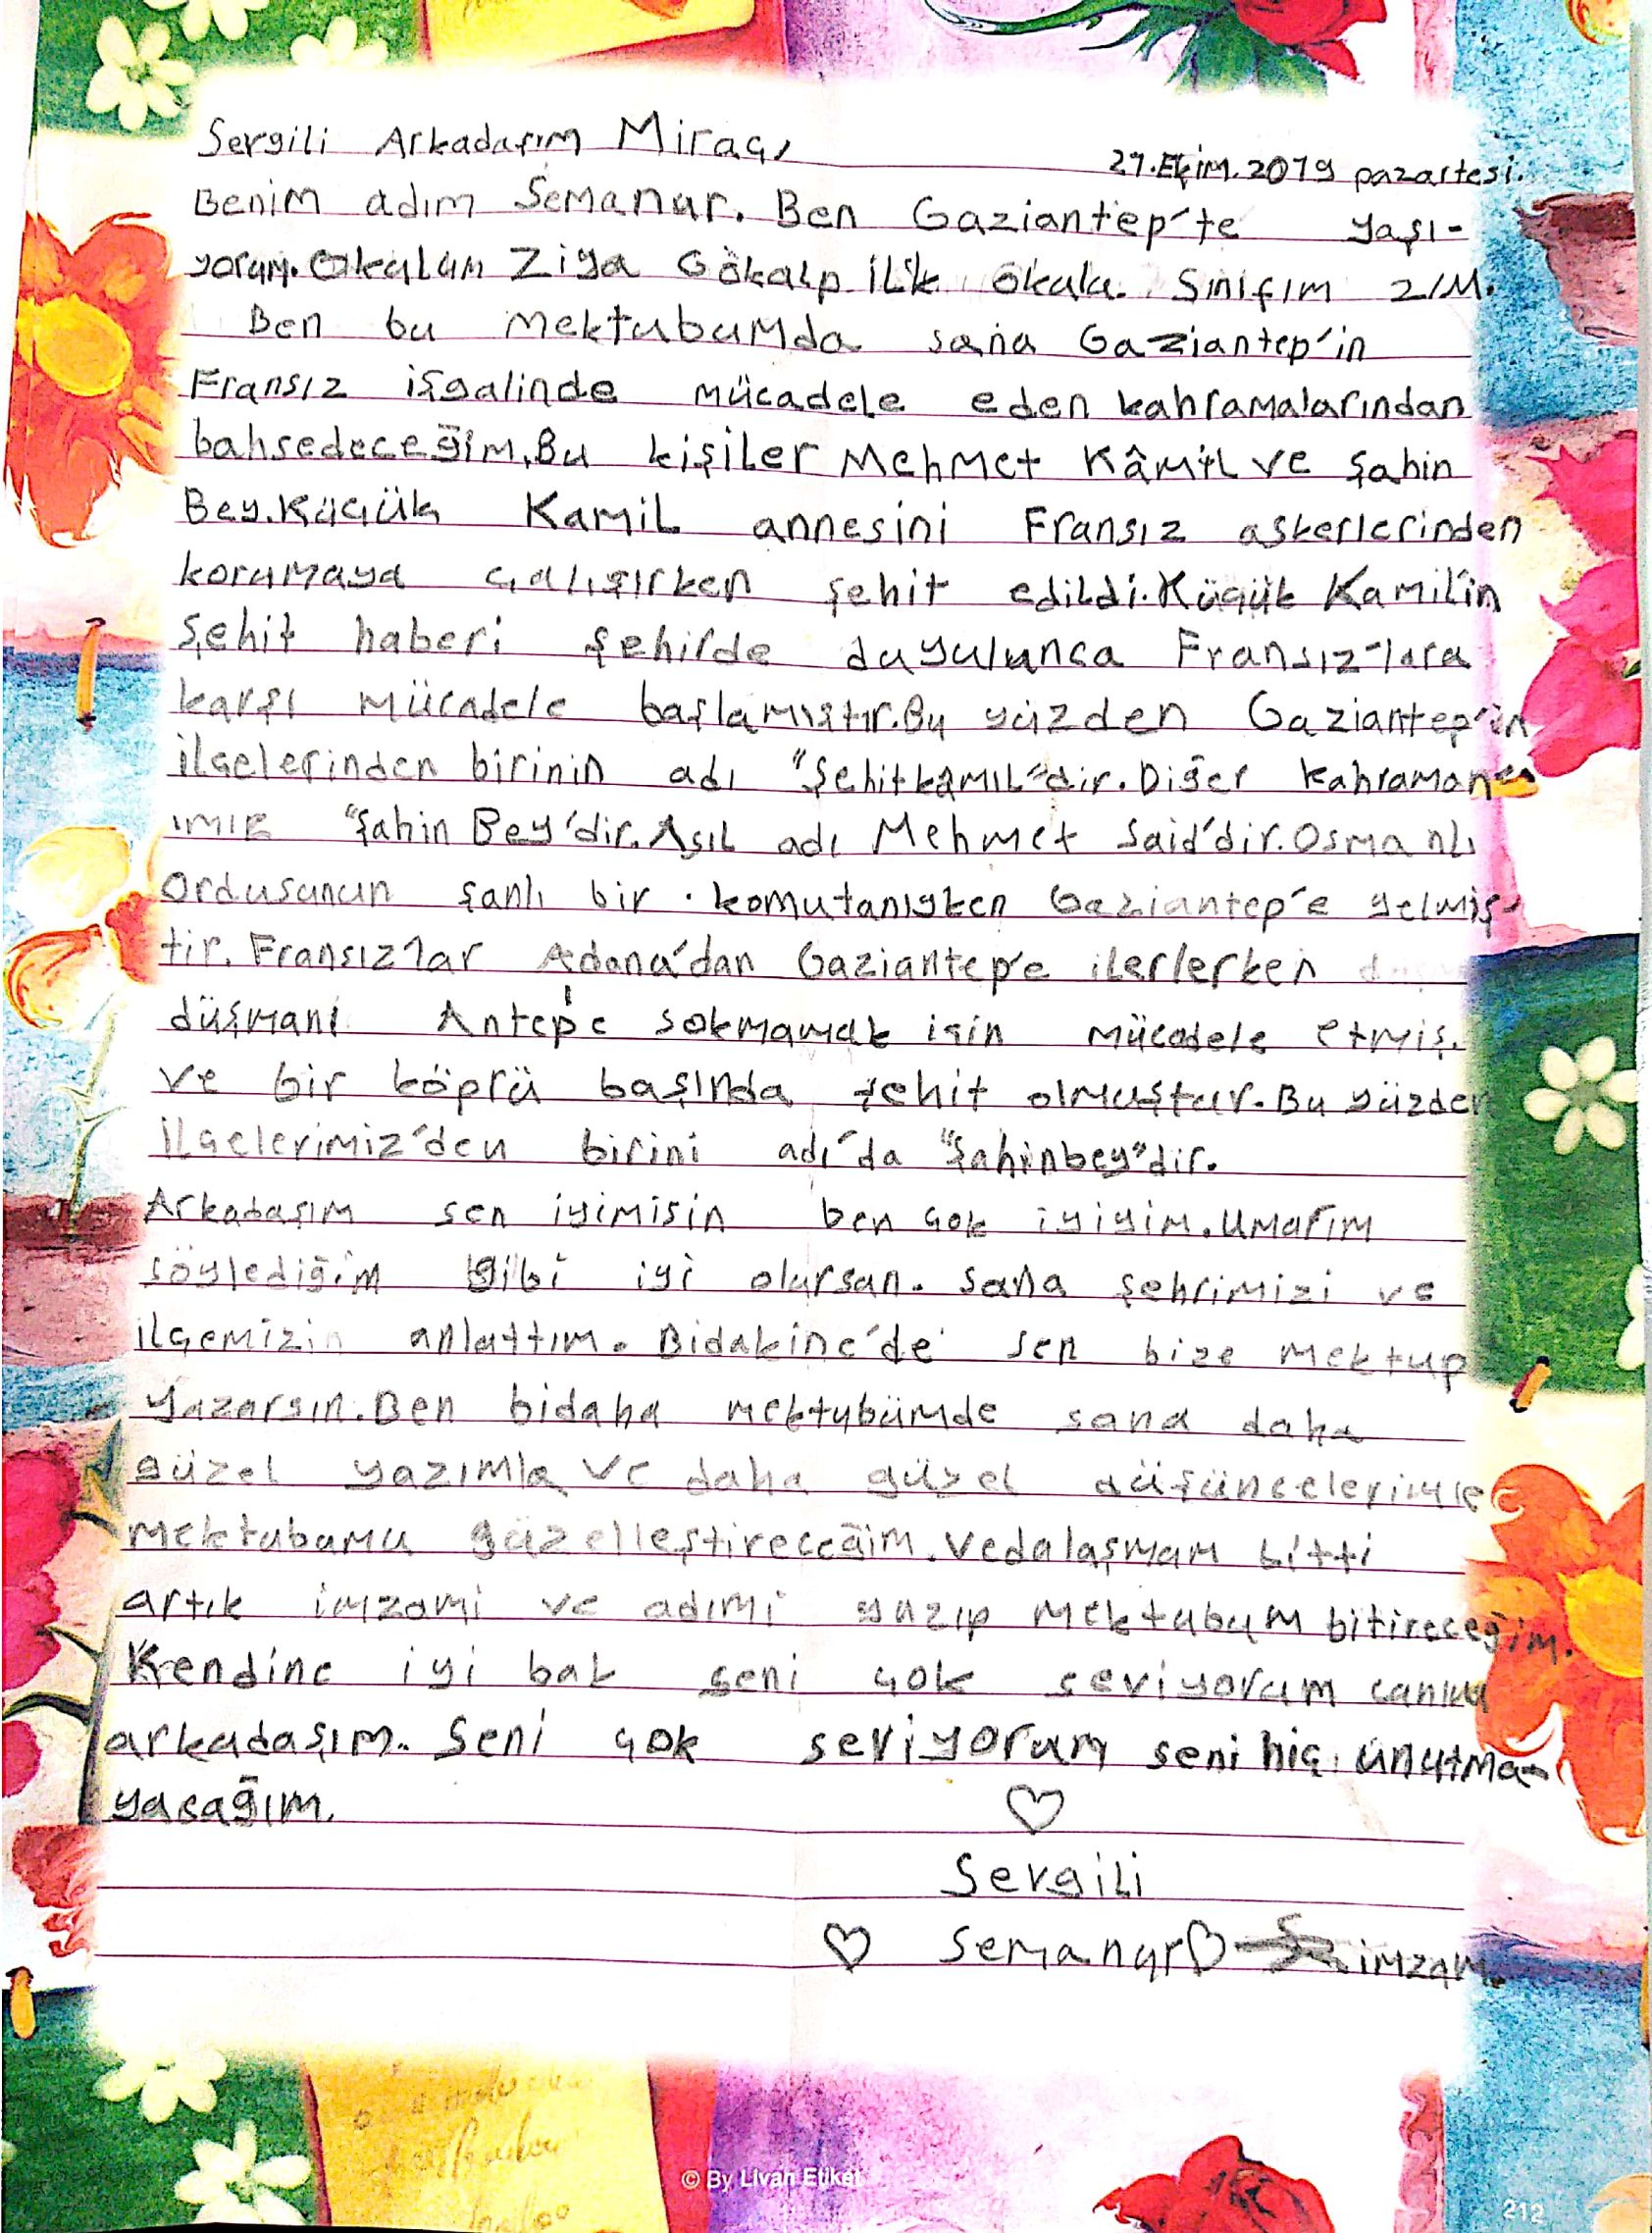 Sevgili Arkadaşım Miraç,
21.Ekim.2019 pazartesi.
Benim adım Semanur. Ben Gaziantep'te yaşı-
yorum. Okulum Ziya Gökalp İlk Okulu. Sınıfım 2/M.
Ben bu mektubumda sana Gaziantep'in
Fransız işgalinde mücadele eden kahramalarından
bahsedeceğim. Bu kişiler Mehmet Kâmil ve Şahin
Bey. Küçük Kamil annesini Fransız askerlerinden
korumaya çalışırken şehit edildi. Küçük Kamil'in
şehit haberi şehirde duyulunca Fransız-lara
karşı mücadele başlamıştır. Bu yüzden Gaziantep'in
ilçelerinden birinin adı "Şehitkamil"dir. Diğer kahraman-
ımız "Şahin Bey'dir. Asıl adı Mehmet Said'dir. Osmanlı
Ordusunun şanlı bir komutanıyken Gaziantep'e gelmiş-
tir. Fransızlar Adana'dan Gaziantep'e ilerlerken
düşmanı Antep'e sokmamak için mücadele etmiş.
ve bir köprü başında şehit olmuştur. Bu yüzden
İlçelerimiz'den birini adı'da "Şahinbey"dir.
Arkadaşım sen iyimisin ben çok iyiyim. Umarım
söylediğim gibi iyi olursan. Sana şehrimizi ve
ilçemizin anlattım. Bidakine'de sen bize mektup
yazarsın. Ben bidaha mektubümde sana daha
güzel yazımla ve daha güzel düşüncelerimle
mektubumu güzelleştireceğim. Vedalaşmam bitti
artık imzami ve adımi yazıp mektubum bitireceğim.
Kendine iyi bak seni çok seviyorum canım
arkadaşım. Seni çok seviyorum seni hiç unutma-
yacağım.
Sevgili
Semanur imzam.
© By Livan Etiket
212